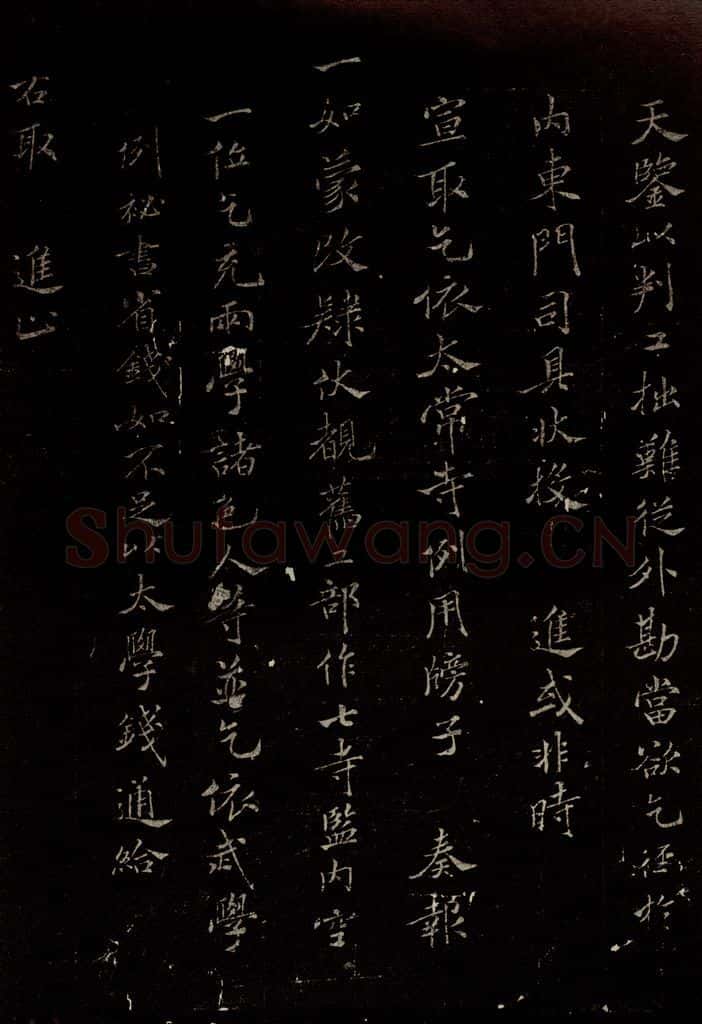 天鑒以判工拙難從外勘當欲乞徑於
內東門司具狀投 進或非時
宣取乞依太常寺例用牓子 奏報
一如蒙改隸伏覩舊工部作七寺監內空
一位乞充兩學諸色人等並乞依武學
例祕書省錢如不足以太學錢通給
右取 進止
Shufawang.CN